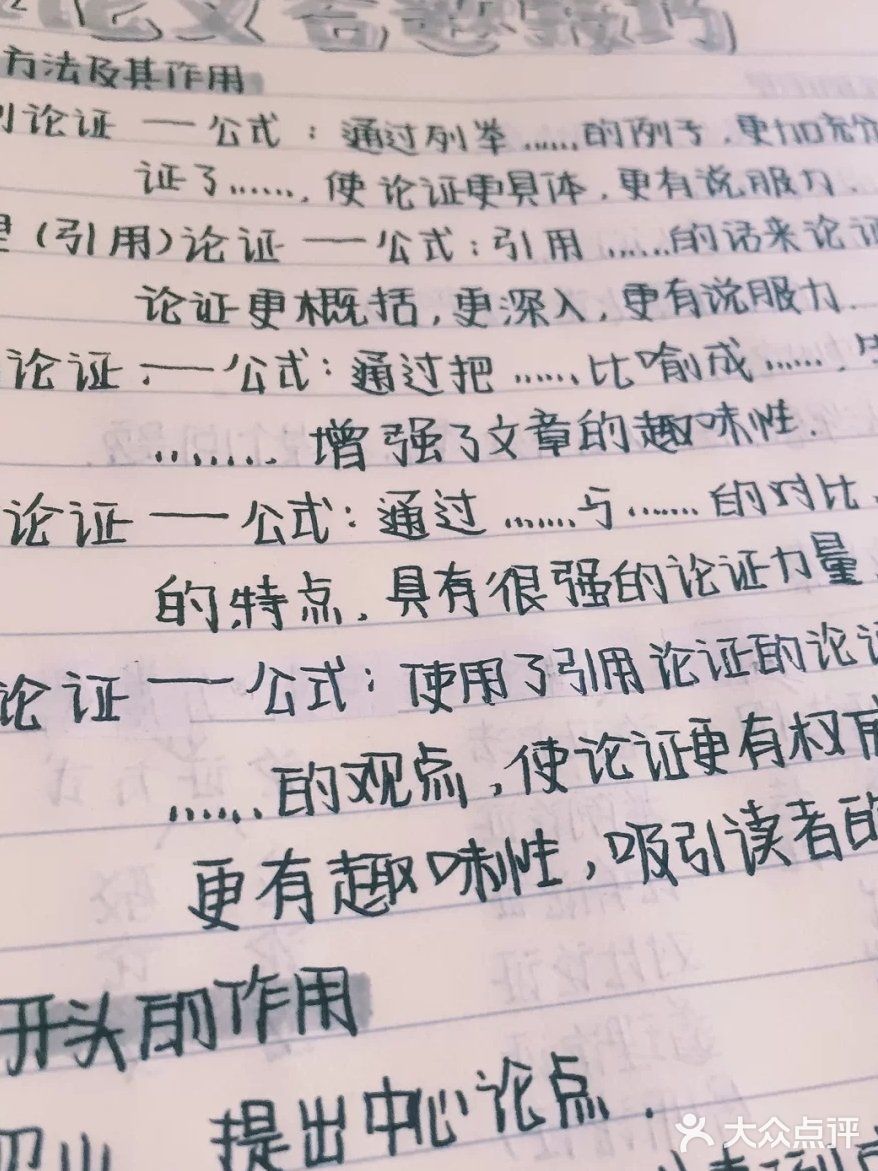 方法及其作用
论证 —— 公式：通过列举……的例子，更加充分
证了……，使论证更具体，更有说服力．
（引用）论证 —— 公式：引用……的话来论证
论证更概括，更深入，更有说服力．
论证 —— 公式：通过把……比喻成……，
………增强了文章的趣味性．
论证 —— 公式：通过……与……的对比，
的特点，具有很强的论证力量
论证 —— 公式：使用了引用论证的论证
……的观点，使论证更有权威
更有趣味性，吸引读者的
开头的作用
提出中心论点．
大众点评